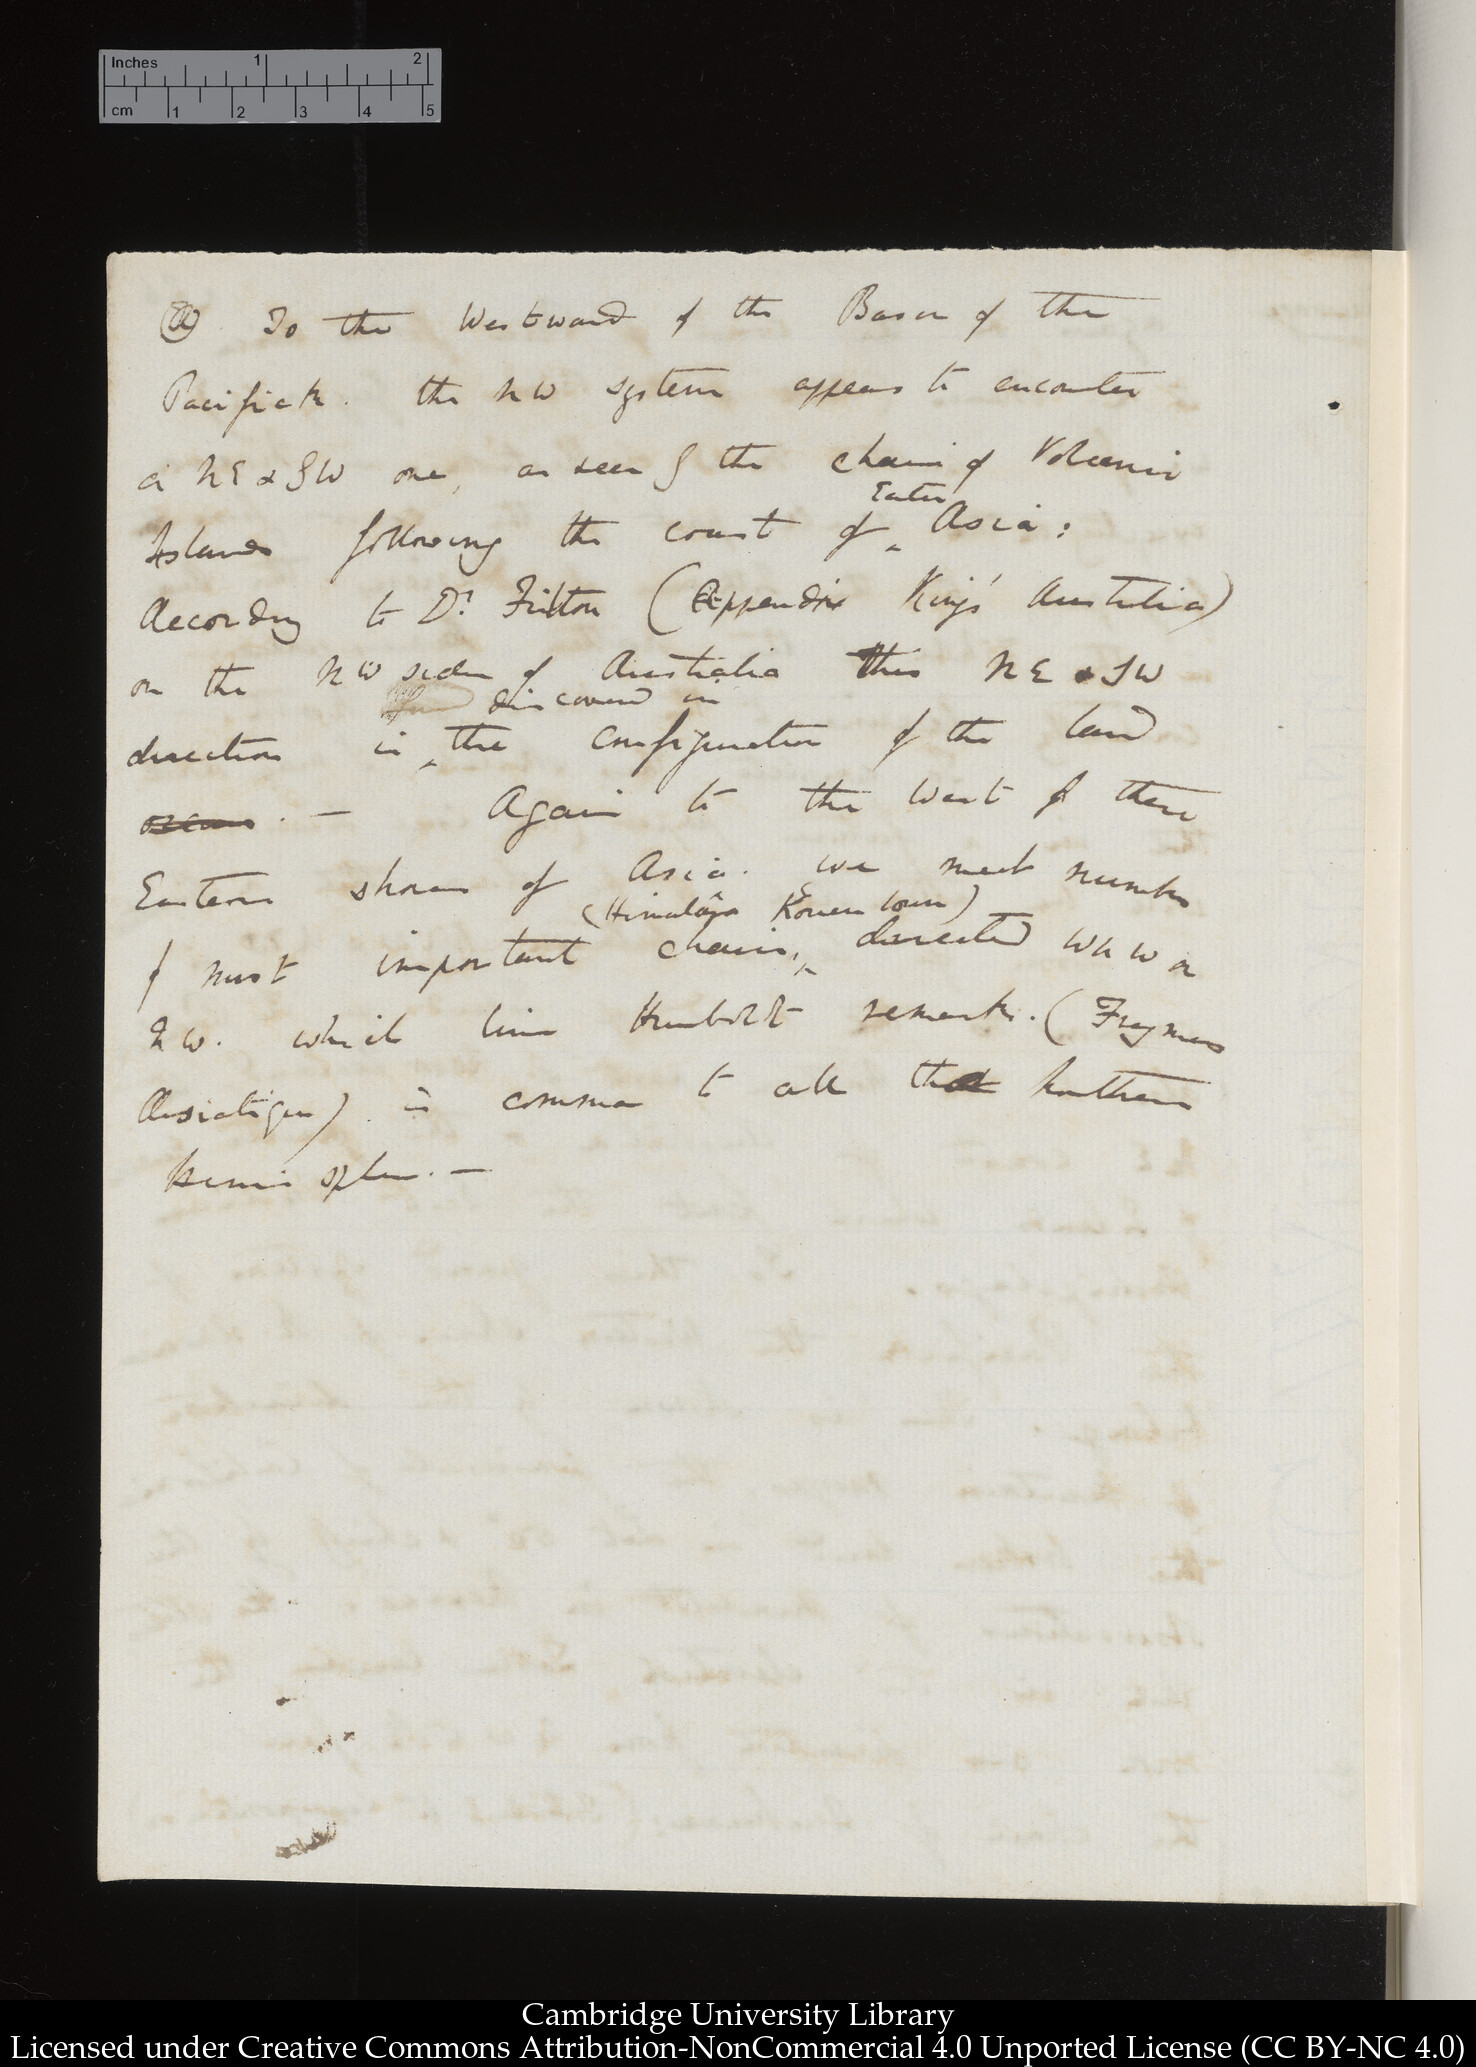 Inches 1 2
cm 1 2 3 4 5
(a) To the Westward of the Basin of the
Pacifick. the NW system appears to encounter
a NE & SW one, as seen in the chain of Volcanic
Eastern
Islands following the coast of ‸ Asia:
According to Dr. Fitton (Appendix King's Australia)
on the NW side of Australia this NE & SW
discovered in
direction is ‸ the configuration of the land
. — Again to the West of these
Eastern shores of Asia. we meet number
(Himalaya Kouenloun)
of most important chains, ‸ directed WNW or
NW. which line Humboldt remarks. (Fragmens
Asiatiques) is common to all the Northern
hemisphere. —
Cambridge University Library
Licensed under Creative Commons Attribution-NonCommercial 4.0 Unported License (CC BY-NC 4.0)